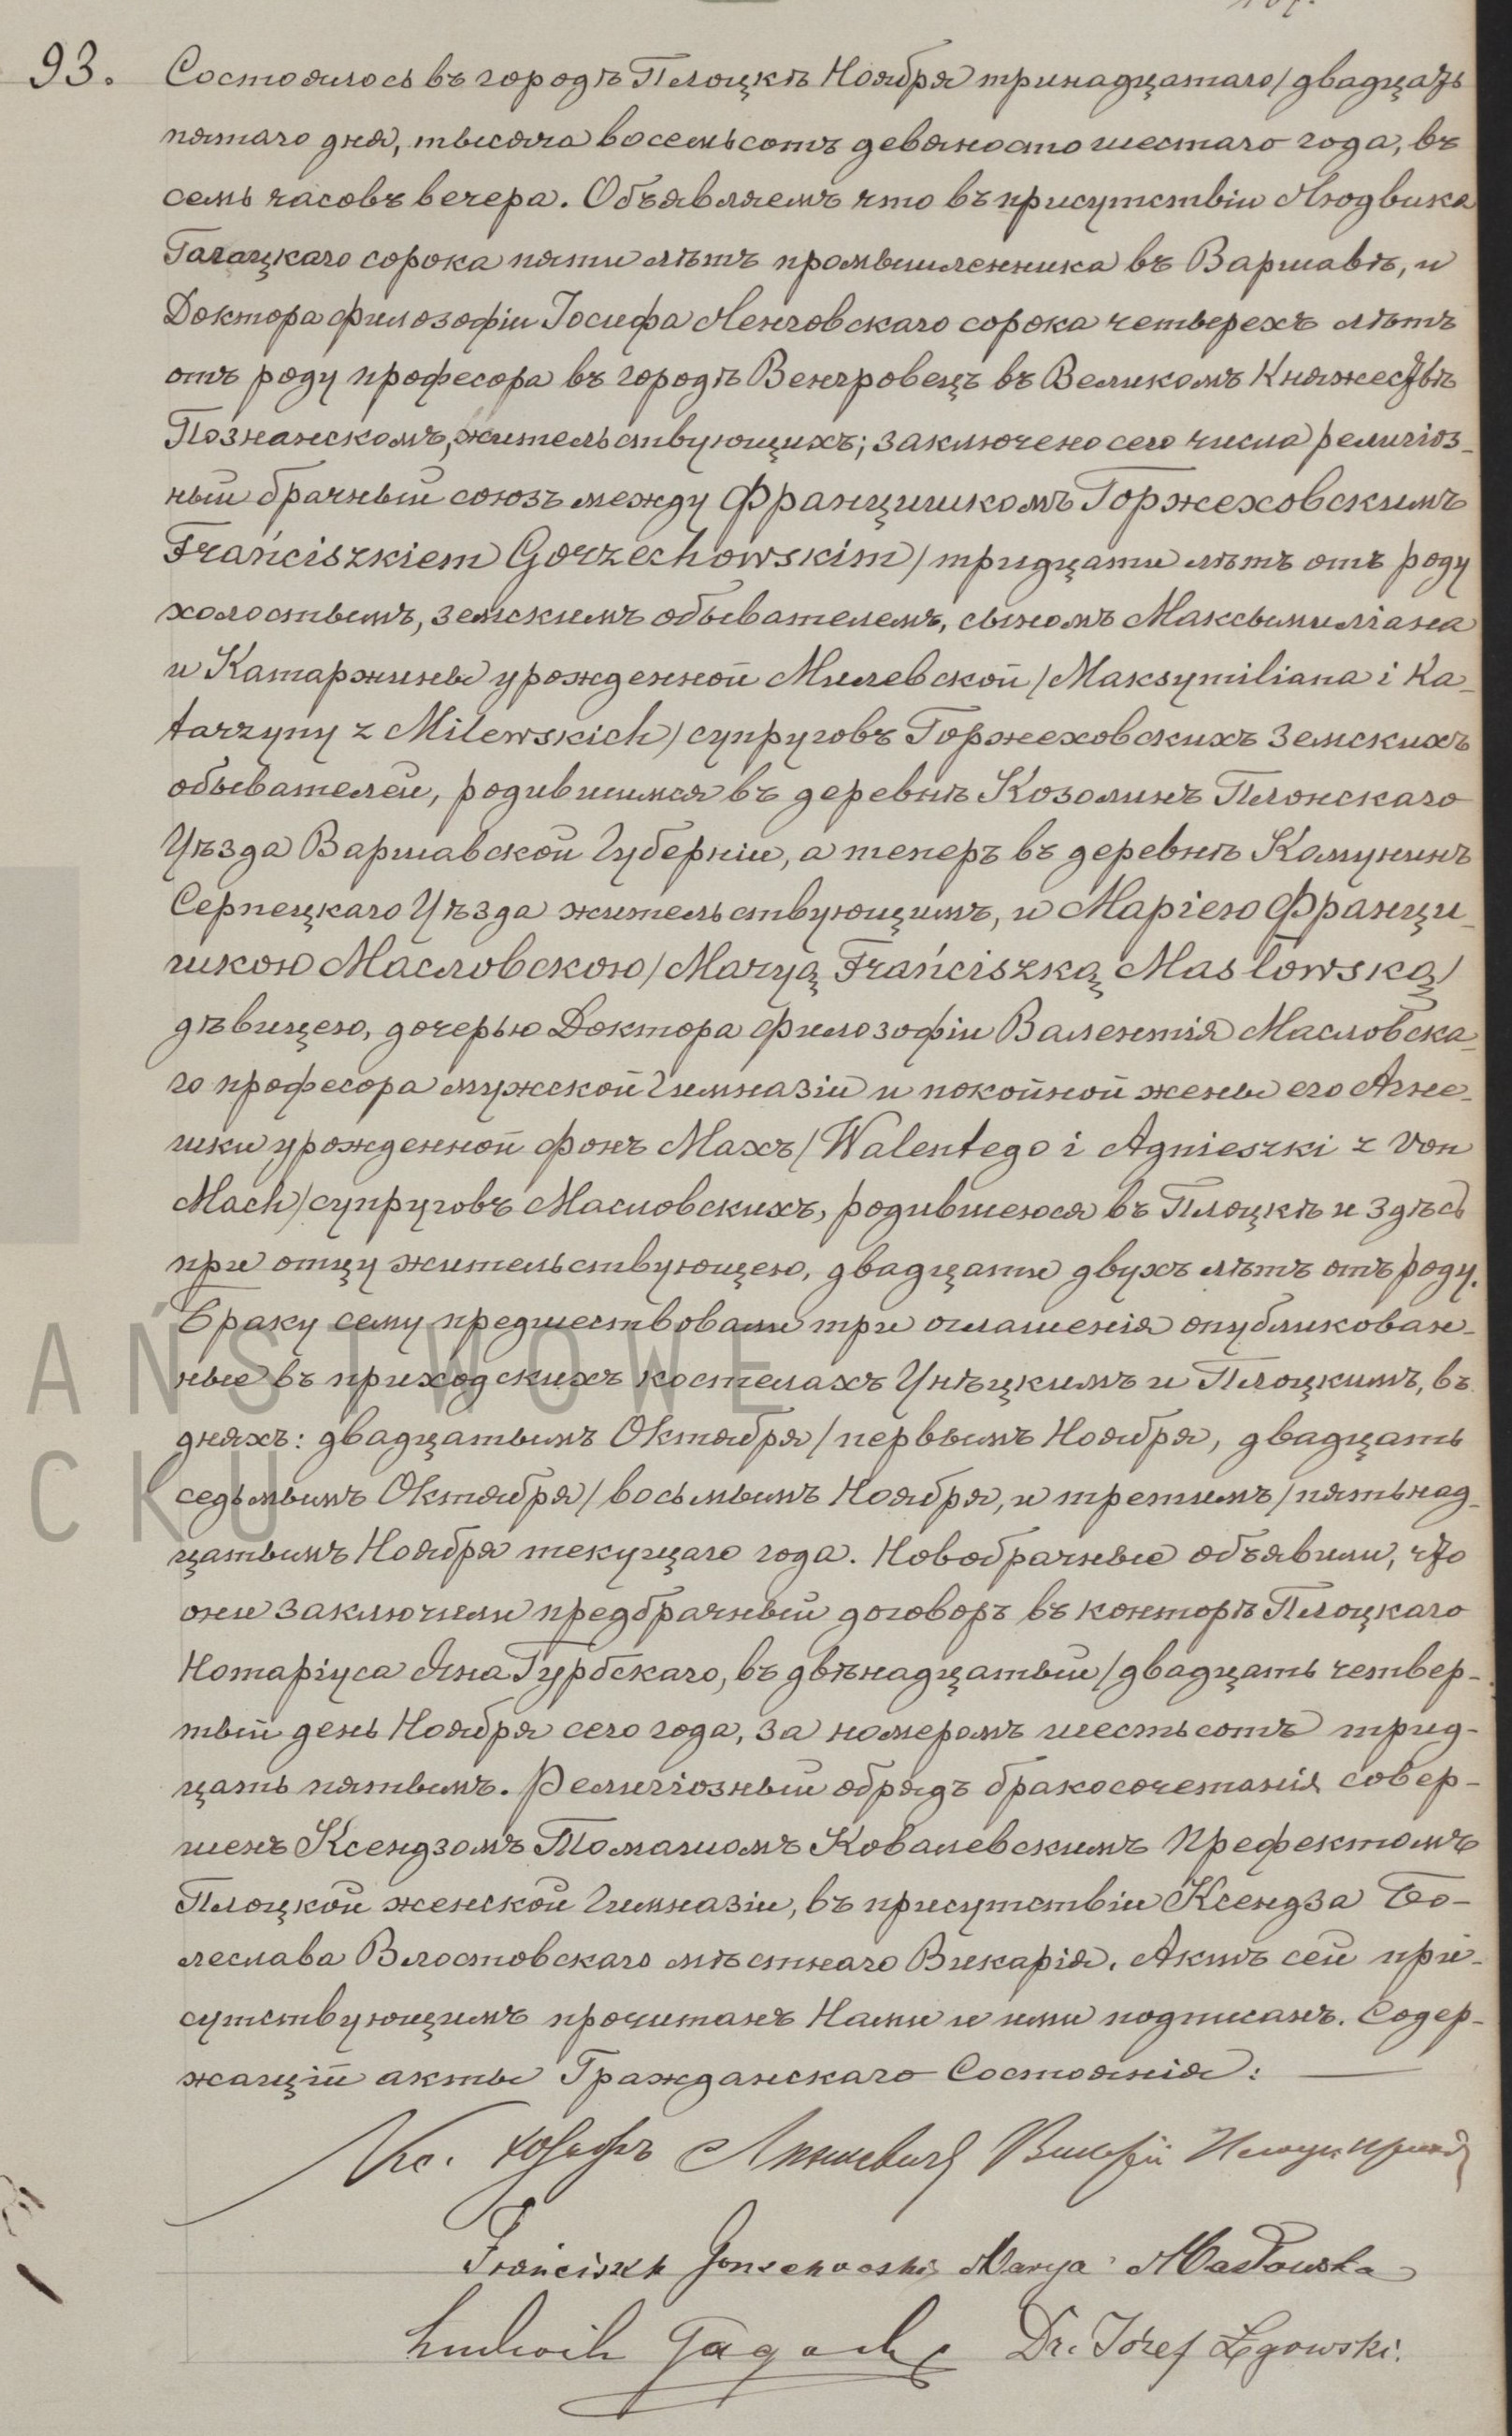 93. Состоялось въ городѣ Плоцкѣ Ноября тринадцатаго/двадцать
пятаго дня, тысяча восемьсотъ девяносто шестаго года, въ
семь часовъ вечера. Объявляемъ что въ присутствіи Людвика
Гагацкаго сорока пяти лѣтъ промышленника въ Варшавѣ, и
Доктора филозофіи Іосифа Ленговскаго сорока четверехъ лѣтъ
отъ роду професора въ городѣ Венгровецъ въ Великомъ Княжествѣ
Познанскомъ, жительствующихъ; заключено сего числа религіоз-
ный брачный союзъ между Францишкомъ Горжеховскимъ
Frańciszkiem Gorzechowskim/ тридцати лѣтъ отъ роду
холостымъ, земскимъ обывателемъ, сыномъ Максымиліана
и Катаржины урожденной Милевской /Maksymiliana i Ka-
tarzyny z Milewskich/ супруговъ Горжеховскихъ Земскихъ
обывателей, родившимся въ деревнѣ Козолинъ Плонскаго
Уѣзда Варшавской Губерніи, а теперъ въ деревнѣ Комунинъ
Серпецкаго Уѣзда жительствующимъ, и Маріею Франци-
шкою Масловскою /Maryą Frańciszką Masłowską/
дѣвицею, дочерью Доктора филозофіи Валентія Масловска-
го професора мужской Гимназіи и покойной жены его Агне-
шки урожденной фонъ Махъ /Walentego i Agnieszki z von
Mach/ супруговъ Масловскихъ, родившеюся въ Плоцкѣ и здѣсь
при отцу жительствующею, двадцати двухъ лѣтъ отъ роду.
Браку сему предшествовали три оглашенія опубликован-
ные въ приходскихъ костелахъ Унѣцкимъ и Плоцкимъ, въ
дняхъ: двадцатымъ Октября/первымъ Ноября, двадцать
седьмымъ Октября/восьмымъ Ноября, и третимъ/пятьнад-
цатымъ Ноября текущаго года. Новобрачные объявили, что
они заключили предбрачный договоръ въ конторѣ Плоцкаго
Нотаріуса Яна Гурбскаго, въ двѣнадцатый/двадцать четвер-
тый день Ноября сего года, за номеромъ шестьсотъ трид-
цать пятымъ. Религіозный обрядъ бракосочетанія совер-
шенъ Ксендзомъ Томашомъ Ковалевскимъ Префектомъ
Плоцкой женской Гимназіи, въ присутствіи Ксендза Бо-
леслава Влостовскаго мѣстнаго Викарія. Актъ сей при-
сутствующимъ прочитанъ Нами и ими подписанъ. Содер-
жащій акты Гражданскаго Состоянія:
Кс.
Frańciszk Gorzechowski Marya Masłowska
Ludwik Gagacki Dr. Józef Łęgowski.
AŃSTWOWE
CKU